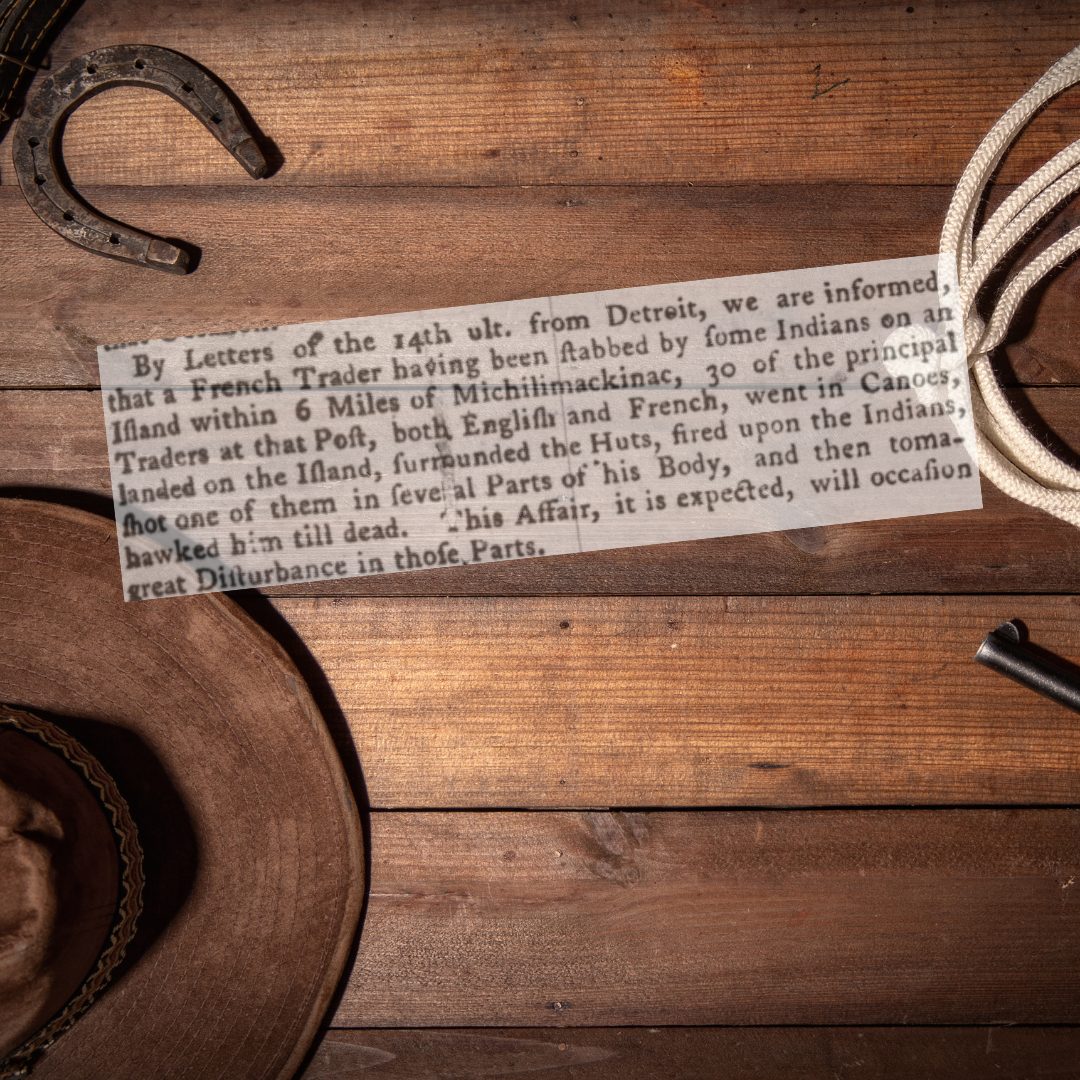 By Letters of the 14th ult. from Detroit, we are informed,
that a French Trader having been ſtabbed by ſome Indians on an
Iſland within 6 Miles of Michilimackinac, 30 of the principal
Traders at that Poſt, both Engliſh and French, went in Canoes,
landed on the Iſland, ſurrounded the Huts, fired upon the Indians,
ſhot one of them in ſeveral Parts of his Body, and then toma-
hawked him till dead. This Affair, it is expected, will occaſion
great Diſturbance in thoſe Parts.